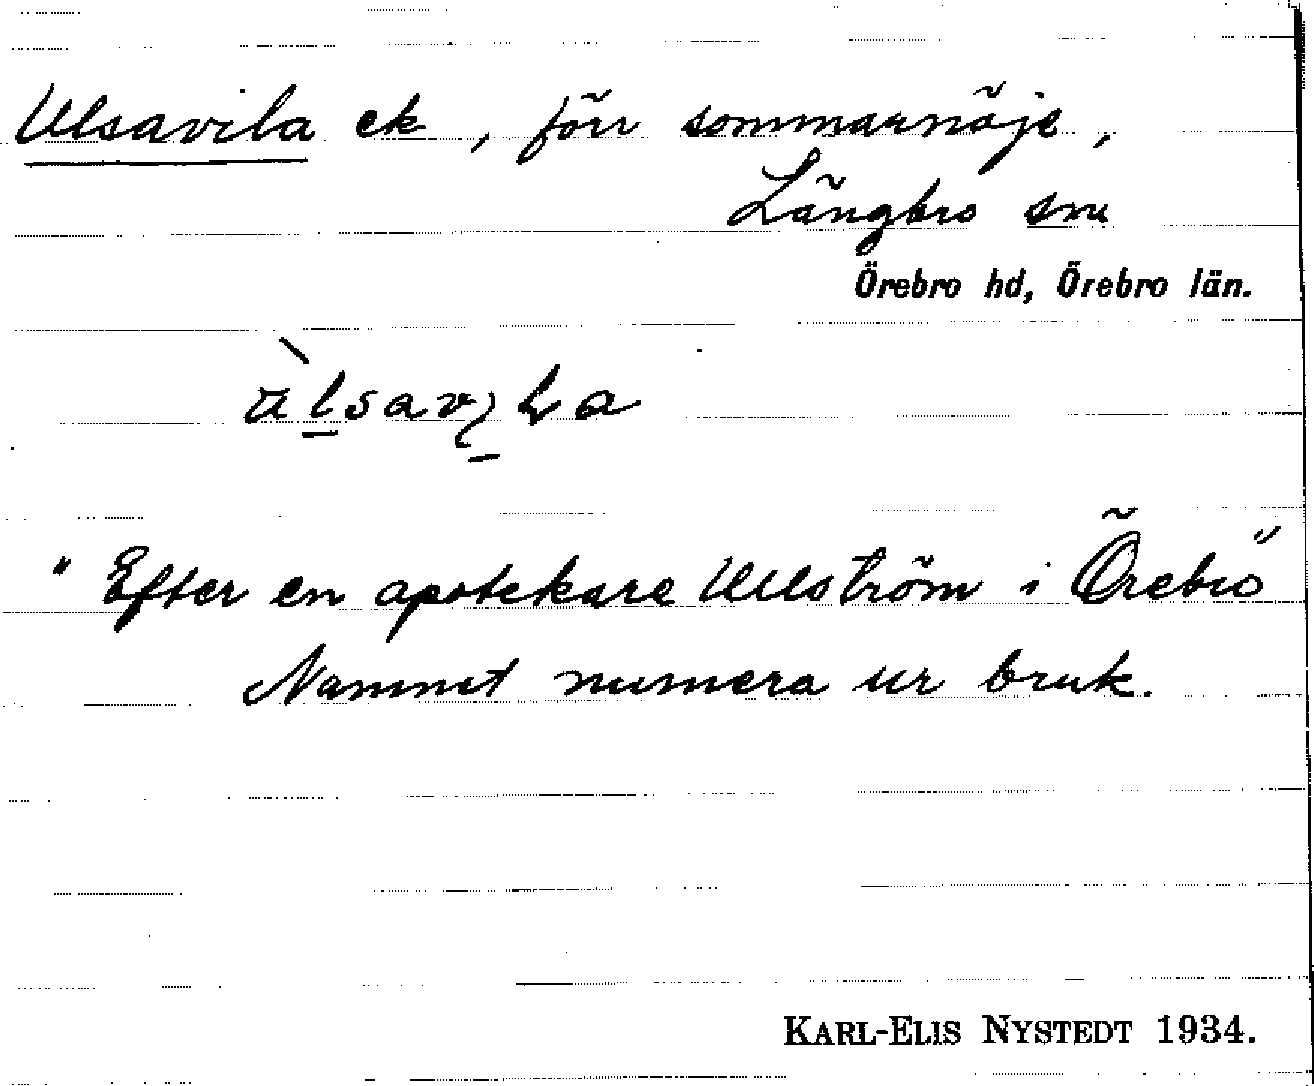 Ulsavila ek, förr sommarnöje,
Långbro sn
Örebro hd, Örebro län.
"Efter en apotekare Ullström i Örebro"
Namnet numera ur bruk.
KARL-ELIS NYSTEDT 1934.